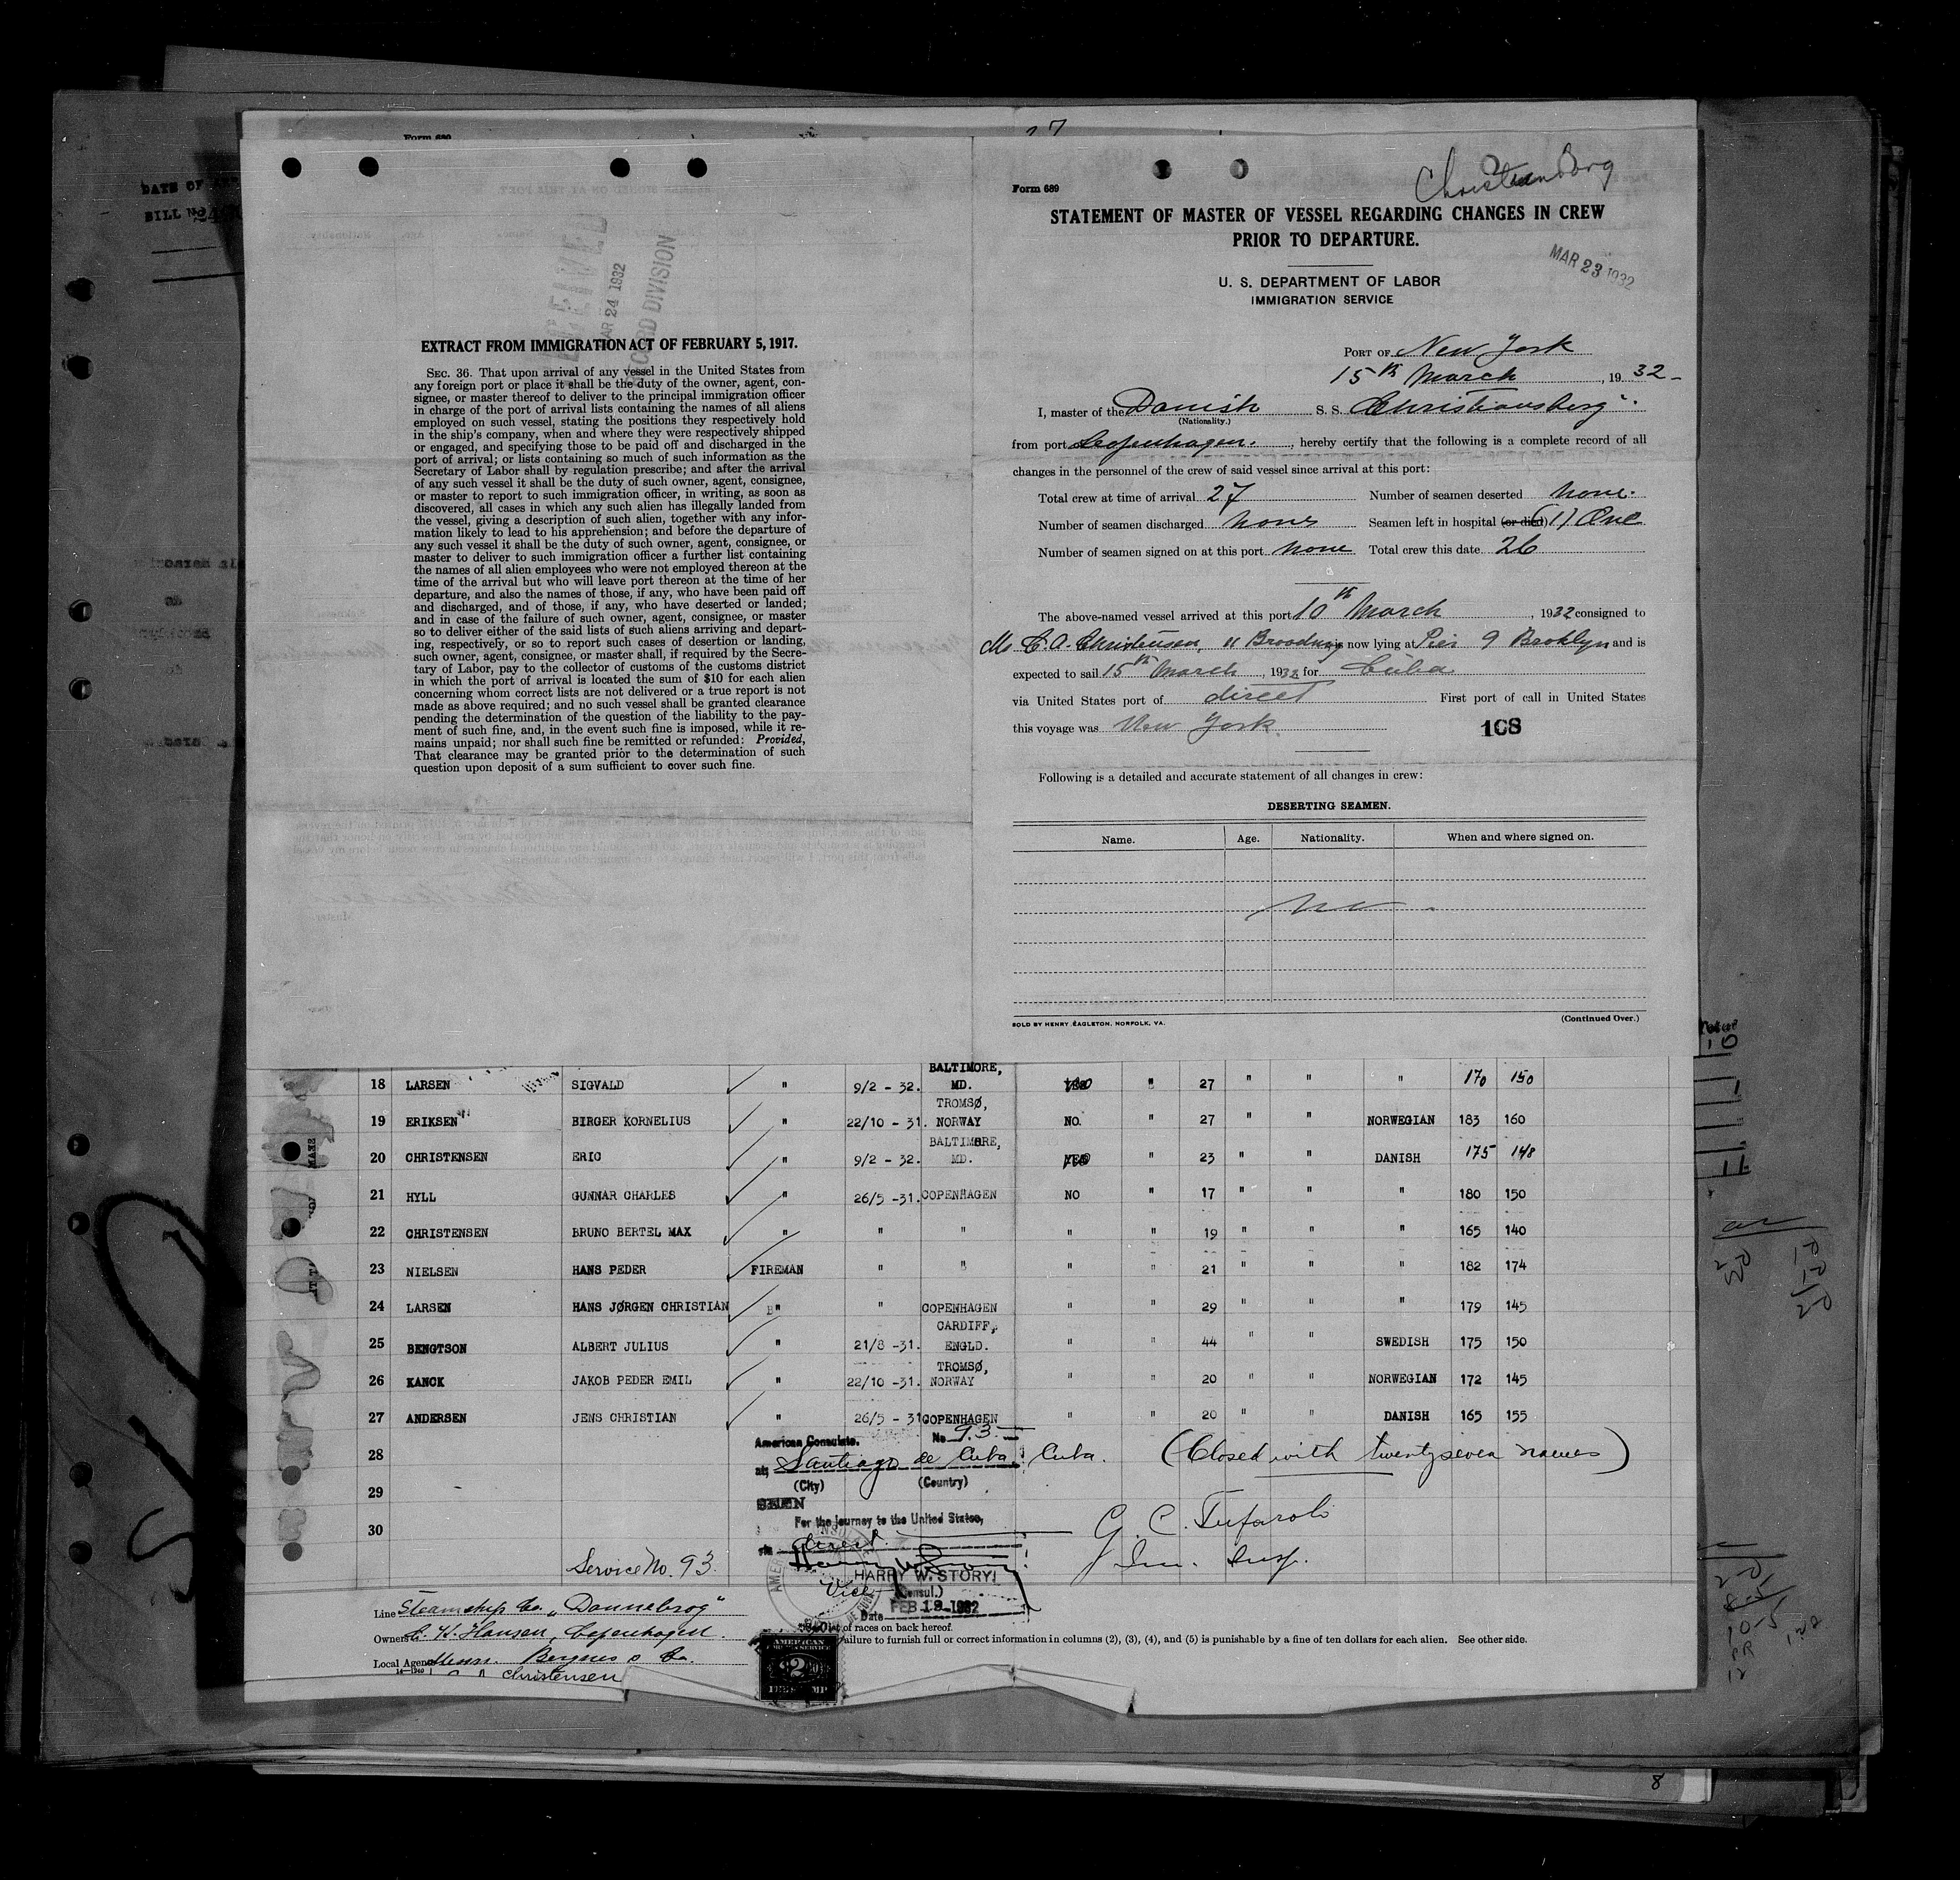 Form 689
27
DATE OF
BILL No
RECEIVED
MAR 24 1932
RECORD DIVISION
EXTRACT FROM IMMIGRATION ACT OF FEBRUARY 5, 1917.
SEC. 36. That upon arrival of any vessel in the United States from
any foreign port or place it shall be the duty of the owner, agent, con-
signee, or master thereof to deliver to the principal immigration officer
in charge of the port of arrival lists containing the names of all aliens
employed on such vessel, stating the positions they respectively hold
in the ship's company, when and where they were respectively shipped
or engaged, and specifying those to be paid off and discharged in the
port of arrival; or lists containing so much of such information as the
Secretary of Labor shall by regulation prescribe; and after the arrival
of any such vessel it shall be the duty of such owner, agent, consignee,
or master to report to such immigration officer, in writing, as soon as
discovered, all cases in which any such alien has illegally landed from
the vessel, giving a description of such alien, together with any infor-
mation likely to lead to his apprehension; and before the departure of
any such vessel it shall be the duty of such owner, agent, consignee, or
master to deliver to such immigration officer a further list containing
the names of all alien employees who were not employed thereon at the
time of the arrival but who will leave port thereon at the time of her
departure, and also the names of those, if any, who have been paid off
and discharged, and of those, if any, who have deserted or landed;
and in case of the failure of such owner, agent, consignee, or master
so to deliver either of the said lists of such aliens arriving and depart-
ing, respectively, or so to report such cases of desertion or landing,
such owner, agent, consignee, or master shall, if required by the Secre-
tary of Labor, pay to the collector of customs of the customs district
in which the port of arrival is located the sum of $10 for each alien
concerning whom correct lists are not delivered or a true report is not
made as above required; and no such vessel shall be granted clearance
pending the determination of the question of the liability to the pay-
ment of such fine, and, in the event such fine is imposed, while it re-
mains unpaid; nor shall such fine be remitted or refunded: Provided,
That clearance may be granted prior to the determination of such
question upon deposit of a sum sufficient to cover such fine.
Christiansborg
Form 689
STATEMENT OF MASTER OF VESSEL REGARDING CHANGES IN CREW
PRIOR TO DEPARTURE.
MAR 23 1932
U. S. DEPARTMENT OF LABOR
IMMIGRATION SERVICE
PORT OF New York
15th March, 1932-
I, master of the Danish S. S. "Christiansborg".
(Nationality.)
from port Copenhagen., hereby certify that the following is a complete record of all
changes in the personnel of the crew of said vessel since arrival at this port:
Total crew at time of arrival 27 Number of seamen deserted none.
Number of seamen discharged none Seamen left in hospital (or died) (1) One
Number of seamen signed on at this port none Total crew this date 26
The above-named vessel arrived at this port 10th March, 1932 consigned to
Mr C. A. Christensen, 11 Broadway is now lying at Pier 9 Brooklyn and is
expected to sail 15th March, 1932 for Cuba
via United States port of direct First port of call in United States
this voyage was New York.
108
Following is a detailed and accurate statement of all changes in crew:
DESERTING SEAMEN.
Name. Age. Nationality. When and where signed on.
SOLD BY HENRY EAGLETON, NORFOLK, VA.
(Continued Over.)
18 LARSEN SIGVALD " 9/2 - 32. BALTIMORE, MD. " 27 " " " 170 150
19 ERIKSEN BIRGER KORNELIUS " 22/10 - 31. TROMSØ, NORWAY NO. " 27 " " NORWEGIAN 183 160
20 CHRISTENSEN ERIC " 9/2 - 32. BALTIMORE, MD. " 23 " " DANISH 175 148
21 HYLL GUNNAR CHARLES " 26/5 -31. COPENHAGEN NO " 17 " " " 180 150
22 CHRISTENSEN BRUNO BERTEL MAX " " " " " 19 " " " 165 140
23 NIELSEN HANS PEDER FIREMAN " " " " 21 " " " 182 174
24 LARSEN HANS JØRGEN CHRISTIAN " " COPENHAGEN " " 29 " " " 179 145
25 BENGTSON ALBERT JULIUS " 21/8 -31. CARDIFF, ENGLD. " " 44 " " SWEDISH 175 150
26 KANCK JAKOB PEDER EMIL " 22/10 -31. TROMSØ, NORWAY " " 20 " " NORWEGIAN 172 145
27 ANDERSEN JENS CHRISTIAN " 26/5 - 31 COPENHAGEN " " 20 " " DANISH 165 155
American Consulate. No 93
28 at Santiago de Cuba, Cuba. (Closed with twentyseven names)
(City) (Country)
29
SEEN
For the journey to the United States,
30
via direct.
G. C. Tufaroli
Imm. Insp.
Service No. 93.
HARRY W. STORY
Vice (Consul.)
Date FEB 19 1932
Line Steamship Co. "Dannebrog"
List of races on back hereof.
Owners C. K. Hansen, Copenhagen.
Failure to furnish full or correct information in columns (2), (3), (4), and (5) is punishable by a fine of ten dollars for each alien. See other side.
Local Agent Messrs. Bergnes & Co.
14-1240
C A Christensen
AMERICAN
SERVICE
$2
FEE STAMP
8